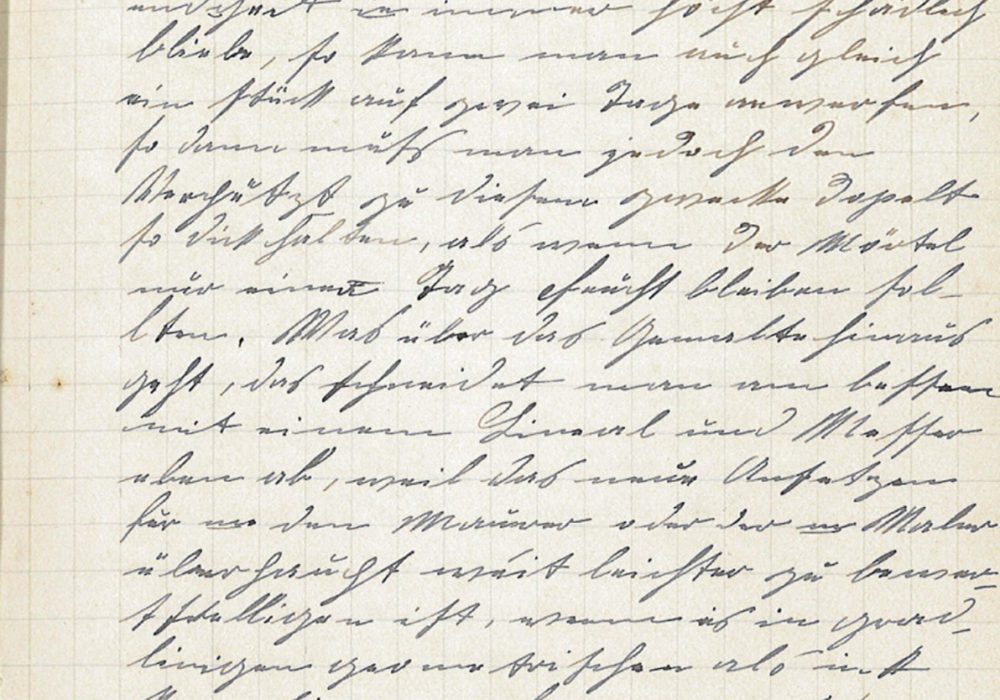 immer höchst schädlich
bliebe, so kann man auch gleich
ein Stück auf zwei Tage anwerfen,
so dann muß man jedoch den
Verputz zu diesem zwecke dopelt
so dick halten, als wenn der Mörtel
nur einen Tag feucht bleiben sol-
lten. Was über das Gemalte hinaus
geht, das schneidet man am besten
mit einem Lineal und Messer
eben ab, weil das neue Ansetzen
für den Maurer oder der Maler
überhaupt weit leichter zu bewer-
kstelligen ist, wenn es in grad-
linigen geometrischen als in